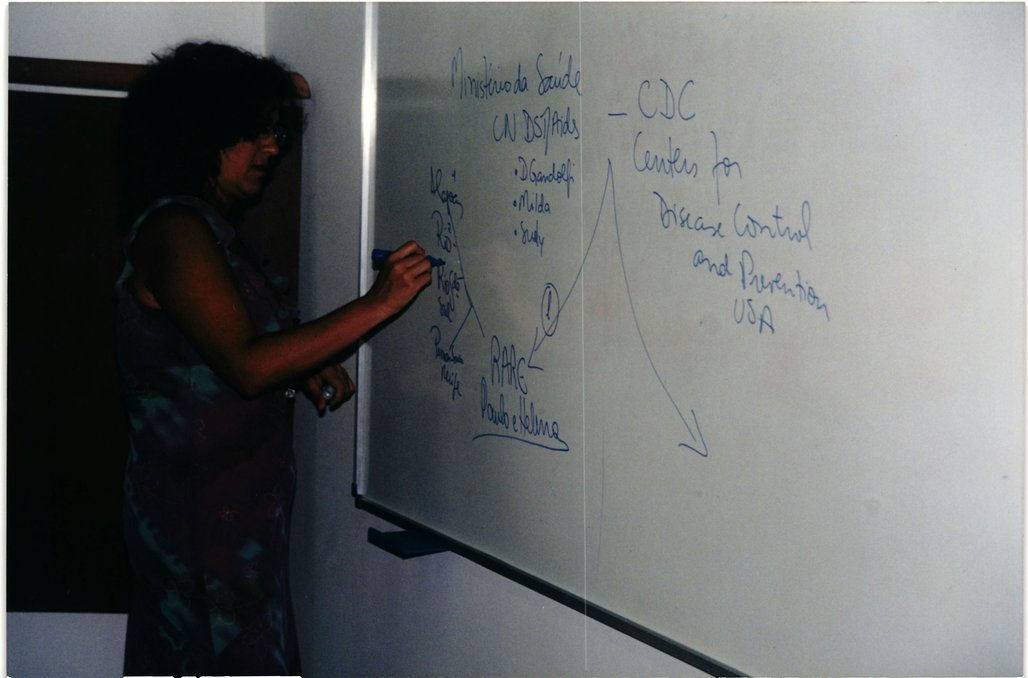 Ministério da Saúde
CN DST/Aids
• D Gandolfi
• Milda
• Sudy
Alagoas
Rio
Rio Gde
Sul
Recife
RARE
Paulo e Helena
!
– CDC
Centers for
Disease Control
and Prevention
USA